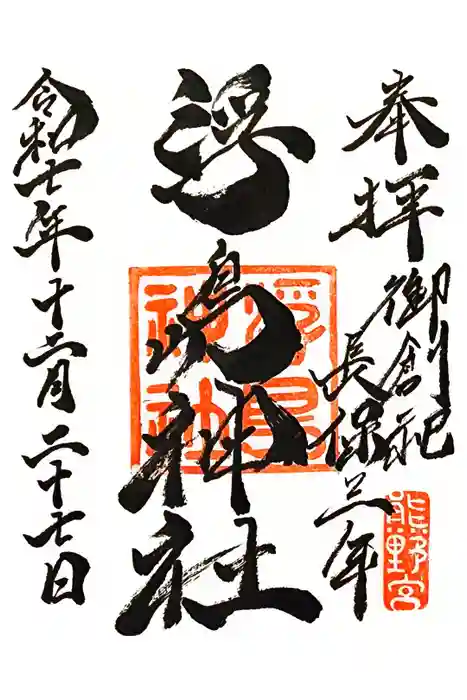 奉拝
御創祀
長保三年
熊野宮
浮島神社
浮島神社
令和七年十二月二十七日